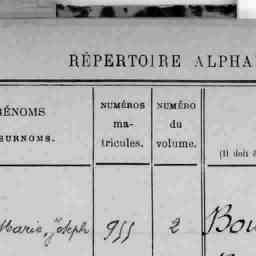 RÉPERTOIRE ALPHA
PRÉNOMS
SURNOMS.
NUMÉROS
ma-
tricules.
NUMÉRO
du
volume.
(Il doit
Marie, Joseph 955 2 Bou